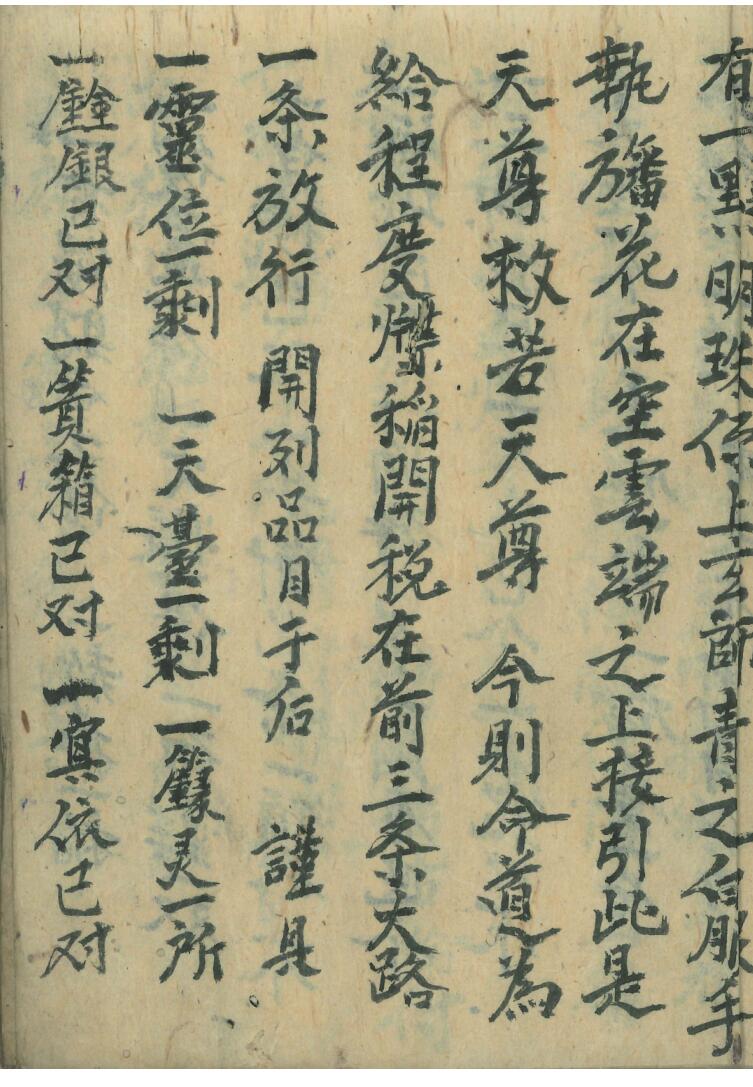 有一點明珠係上玄師青之白服手
執旛花在空雲端之上接引此是
天尊救苦天尊　今則命道為
給程度牒稍開税在前三条大路
一条放行　開列品目于后　謹具
一靈位一剩　一天臺一剩　一籙灵一所
一銀已对　一箱已对　一寘依已对